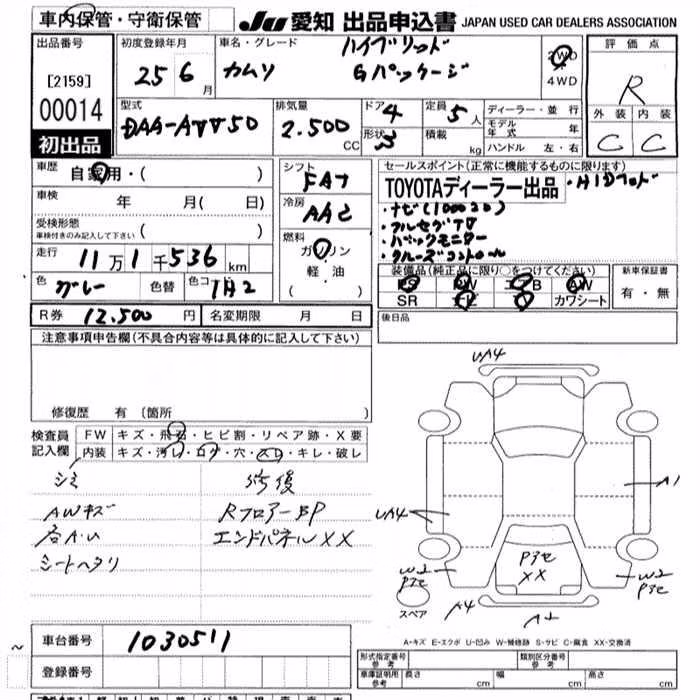 車内保管・守衛保管
JU 愛知 出品申込書 JAPAN USED CAR DEALERS ASSOCIATION
出品番号
[2159]
00014
初出品
初度登録年月
25 6 月
車名・グレード
カムリ ハイブリッド
Gパッケージ
2WD
・
4WD
評価点
R
外装 内装
C C
型式
DAA-AVV50
排気量
2.500 CC
ドア 4
形状 3
定員 5 人
積載 kg
ディーラー・並行
モデル年式 年
ハンドル 左・右
車歴
自家用・( )
車検
年 月( 日)
受検形態
車検付きのみ記入して下さい ( )
走行 11万1千536 km
色 グレー 色替 色コード 1H2
シフト
FAT
冷房
AAC
燃料
ガソリン
軽・油
( )
セールスポイント(正常に機能するものに限ります)
TOYOTAディーラー出品 ・HIDライト
・ナビ(100020)
・フルセグTV
・バックモニター
・クルーズコントロール
装備品(純正品に限り○をつけてください)
PS PW エアB AW
SR TV カワシート
新車保証書
有・無
R券 12.500 円 名変期限 月 日
後日品
注意事項申告欄(不具合内容等は具体的に記入して下さい)
修復歴 有 〔箇所 〕
検査員
記入欄
FW キズ・飛石・ヒビ割・リペア跡・X要
内装 キズ・汚レ・コゲ・穴・スレ・キレ・破レ
シミ
AWキズ
各A・U
シートヘタリ
修復
Rフロアー BP
エンドパネルXX
UA4
A1
UA4
W2
Pアセ
Pアセ
XX
W2
Pアセ
スペア
A4
A2
A-キズ E-エクボ U-凹み W-補修跡 S-サビ C-腐食 XX-交換済
車台番号 1030511
登録番号
形式指定番号
参考
類別区分番号
参考
車庫証明用
参考
長さ cm 幅 cm 高さ cm